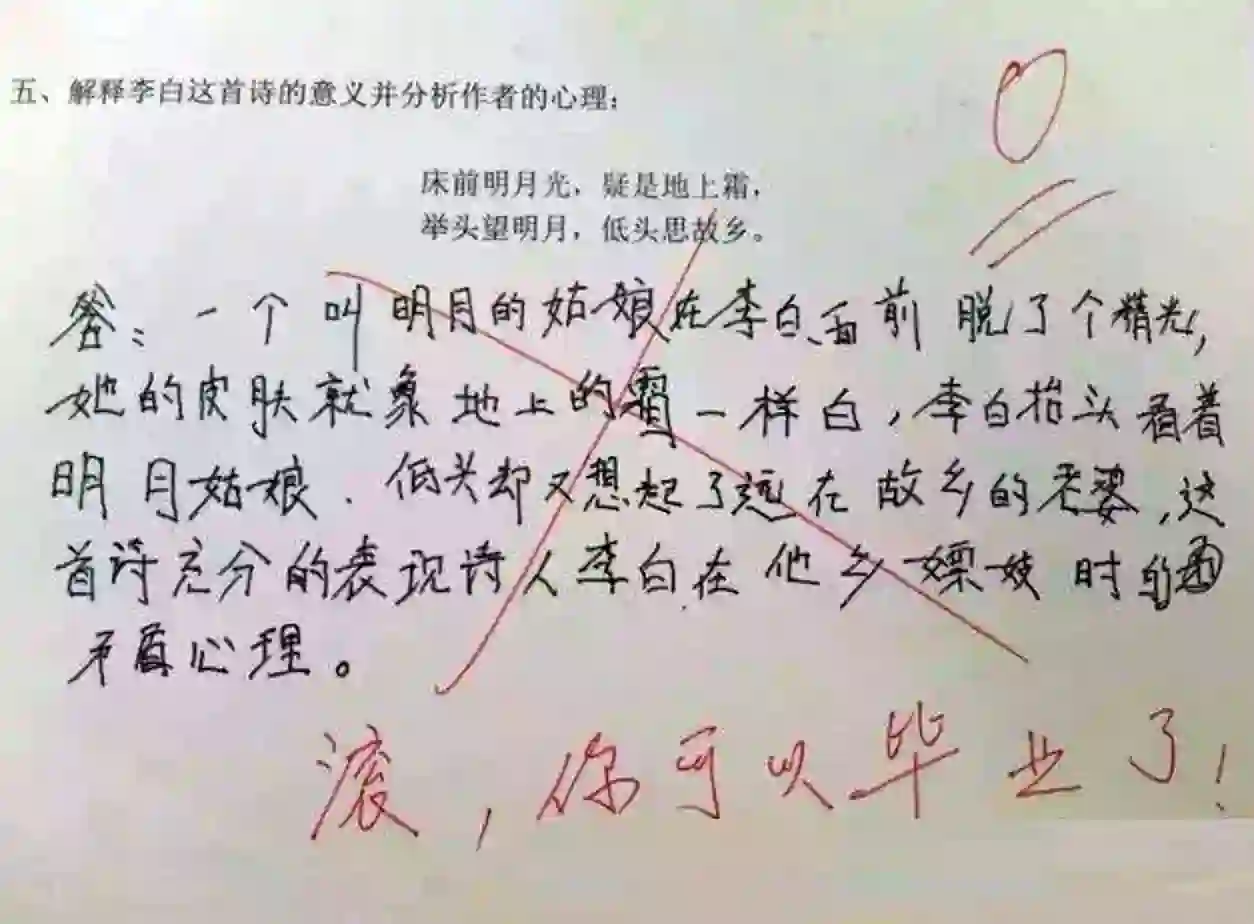 五、解释李白这首诗的意义并分析作者的心理:
床前明月光，疑是地上霜，
举头望明月，低头思故乡。
0
答:一个叫明月的姑娘在李白面前脱了个精光,
她的皮肤就象地上的霜一样白,李白抬头看着
明月姑娘.低头却又想起了远在故乡的老婆,这
首诗充分的表现诗人李白在他乡嫖妓时的
矛盾心理。
滚,你可以毕业了!